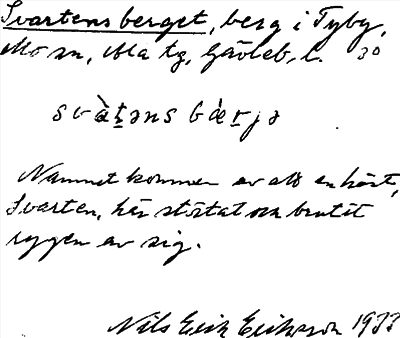 Svartens berget, berg i Tyby,
Mo sn, Ala tg, Gävleb. l. 30
svàtəns bærjə
Namnet kommer av att en häst,
Svarten, här störtat och brutit
ryggen av sig.
Nils Erik Eriksson 1933